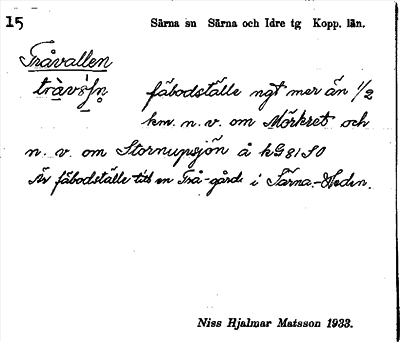 15 Särna sn Särna och Idre tg Kopp. län.
Tråvallen
fäbodställe ngt mer än 1/2
km. n. v. om Mörkret och
n. v. om Stornupsjön å kG 81 SO
Är fäbodställe till en Trå-gård i Särna-Heden.
Niss Hjalmar Matsson 1933.